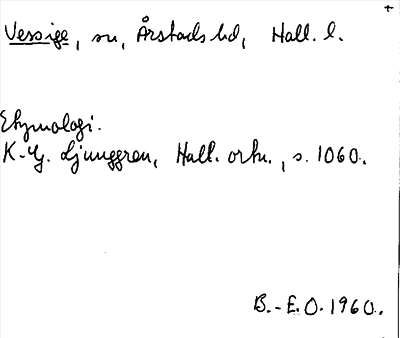 Vessige, sn, Årstads hd, Hall. l.
Etymologi.
K.-G. Ljunggren, Hall. ortn., s. 1060.
B.-E.O. 1960.